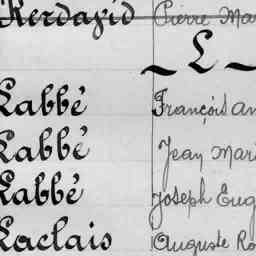 Kerdavid Pierre Mar
~ L ~
Labbé François an
Labbé Jean Mari
Labbé Joseph Eug
Laclais Auguste Ro